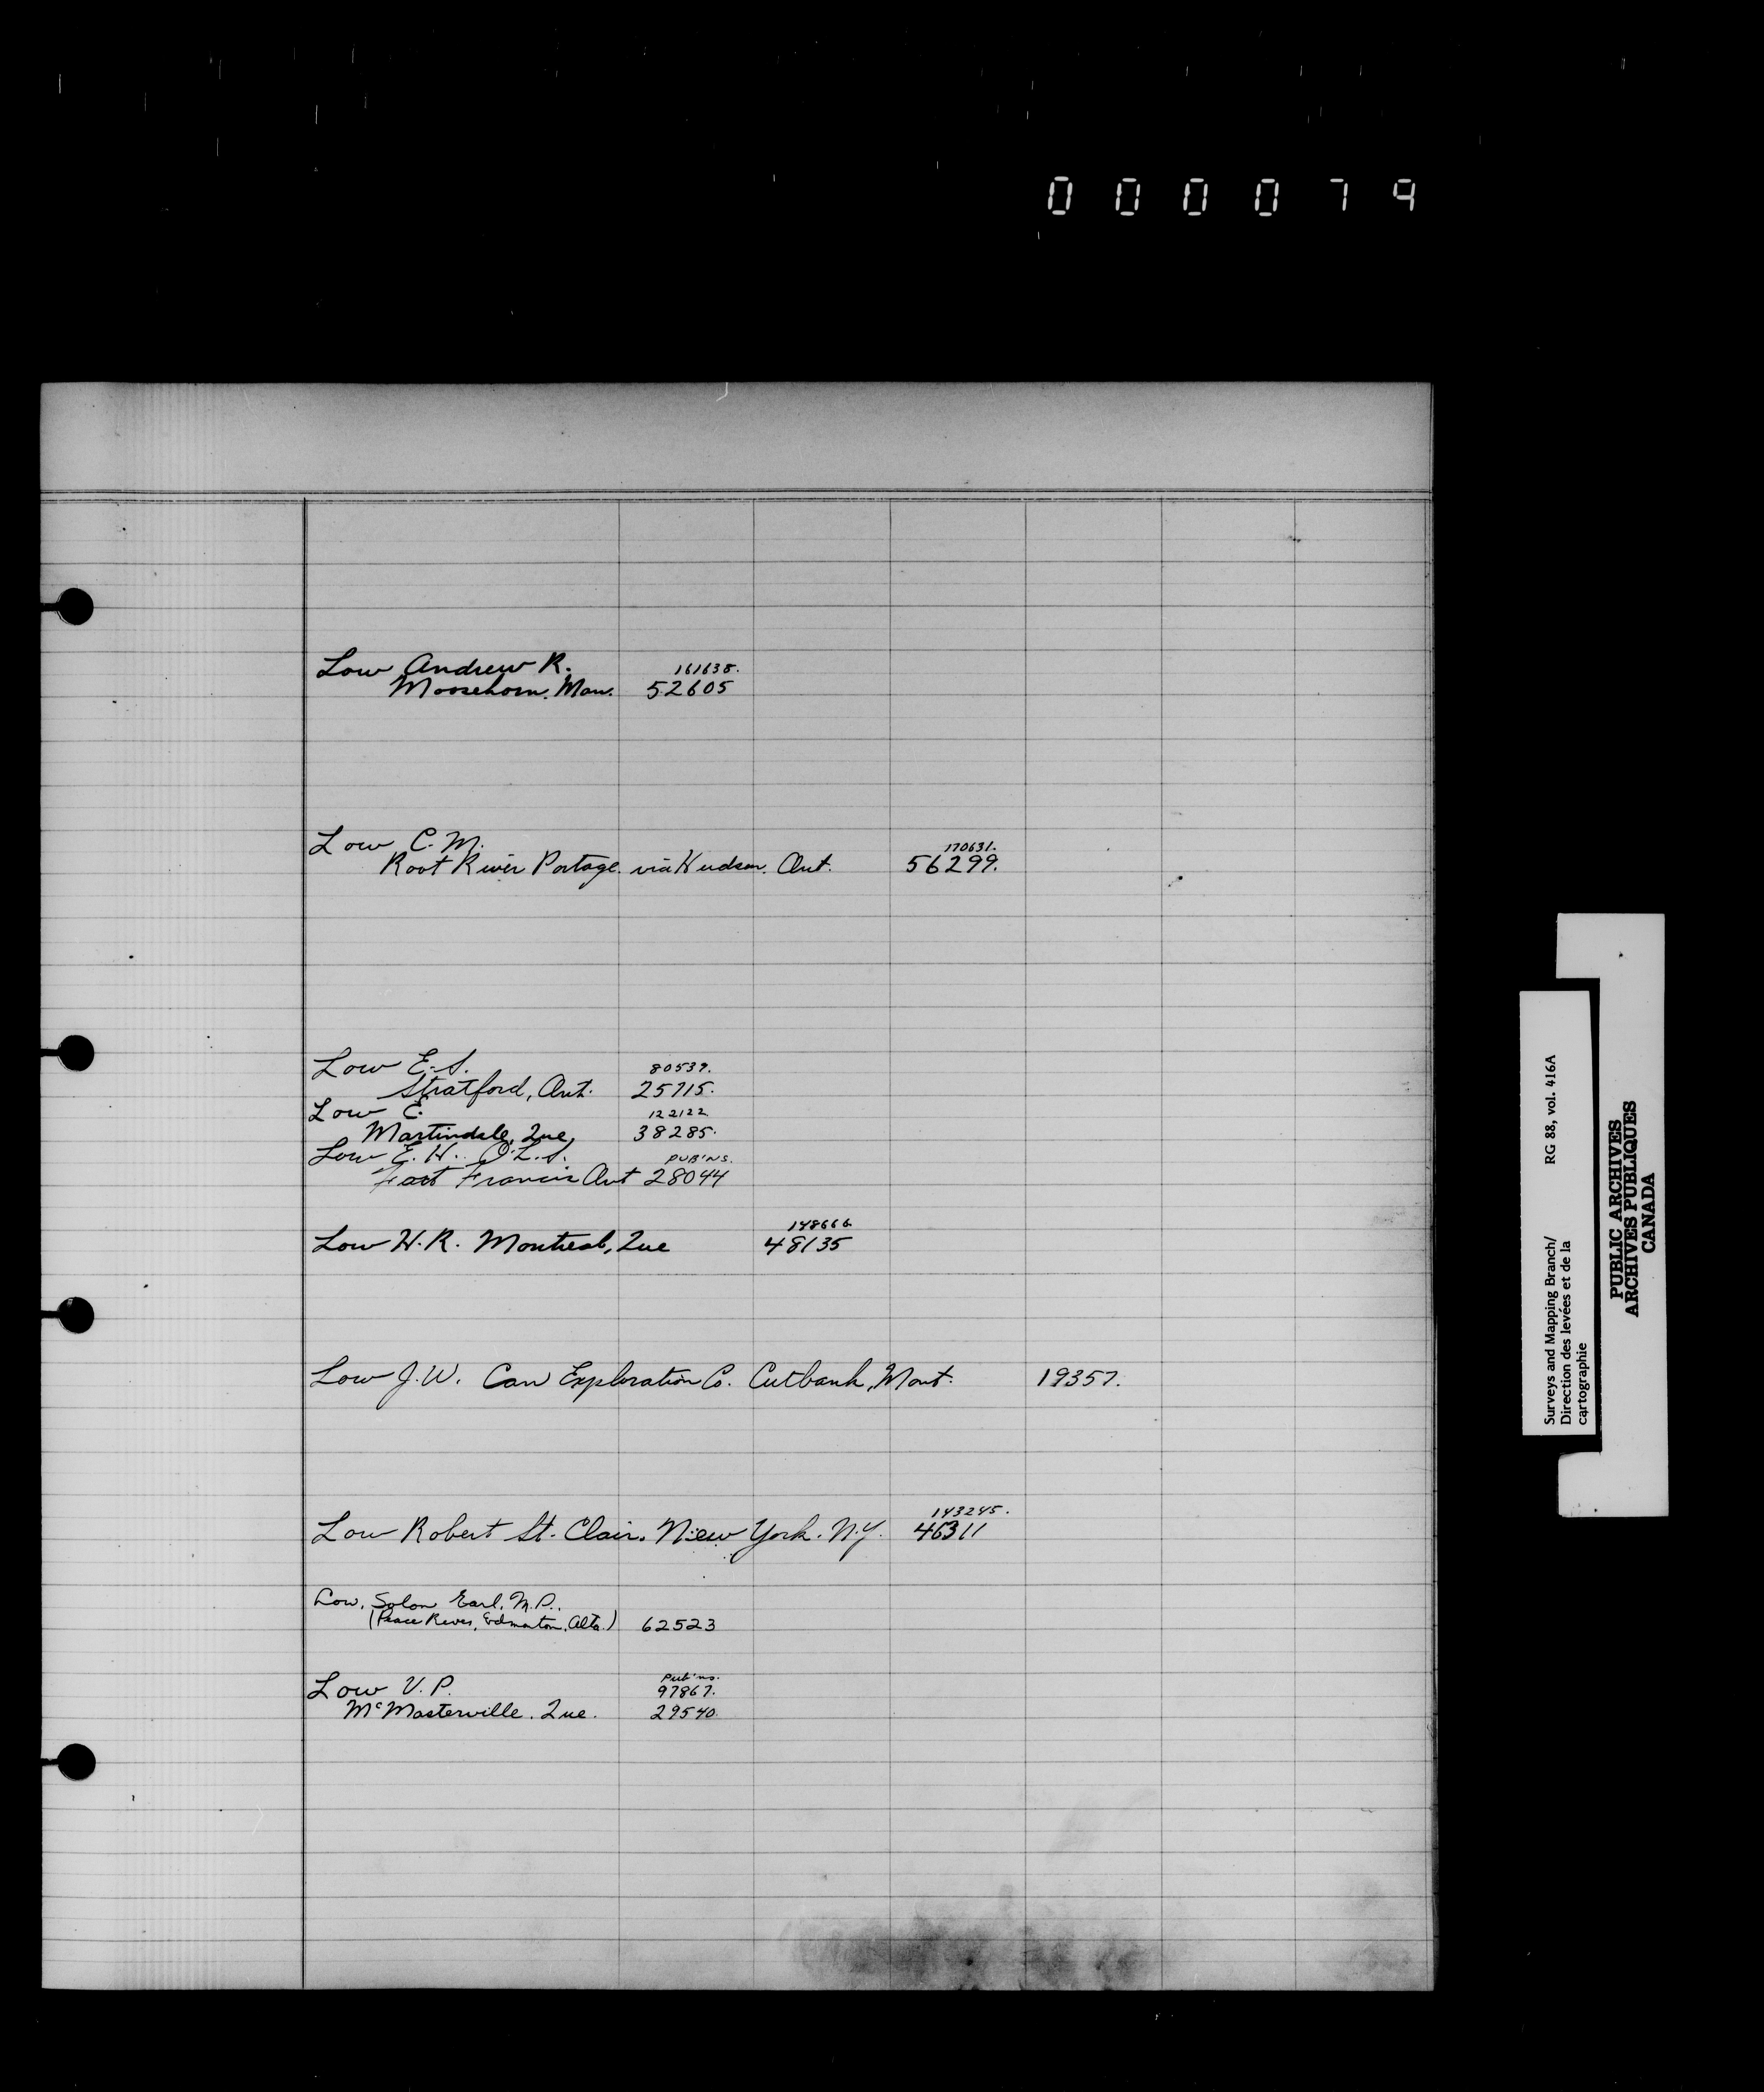 000079
Low Andrew R. 161638.
Moosehorn. Man. 52605
Low C. M. 170631.
Root River Portage. via Hudson. Ont. 56299.
Low E. S. 80539.
Stratford, Ont. 25715.
Low E. 122122
Martindale, Que, 38285.
Low E. H. O.L.S. PUB'NS.
Fort Francis Ont 28044
148666
Low H. R. Montreal, Que 48135
Low J. W. Can Exploration Co. Cutbank, Mont. 19357.
143245.
Low Robert St. Clair. New York. N.Y. 46311
Low, Solon Earl. M.P..
(Peace River, Edmonton, Alta.) 62523
Pub'ns.
Low V. P. 97867.
McMasterville. Que. 29540.
RG 88, vol. 416A
Surveys and Mapping Branch/
Direction des levées et de la
cartographie
PUBLIC ARCHIVES
ARCHIVES PUBLIQUES
CANADA